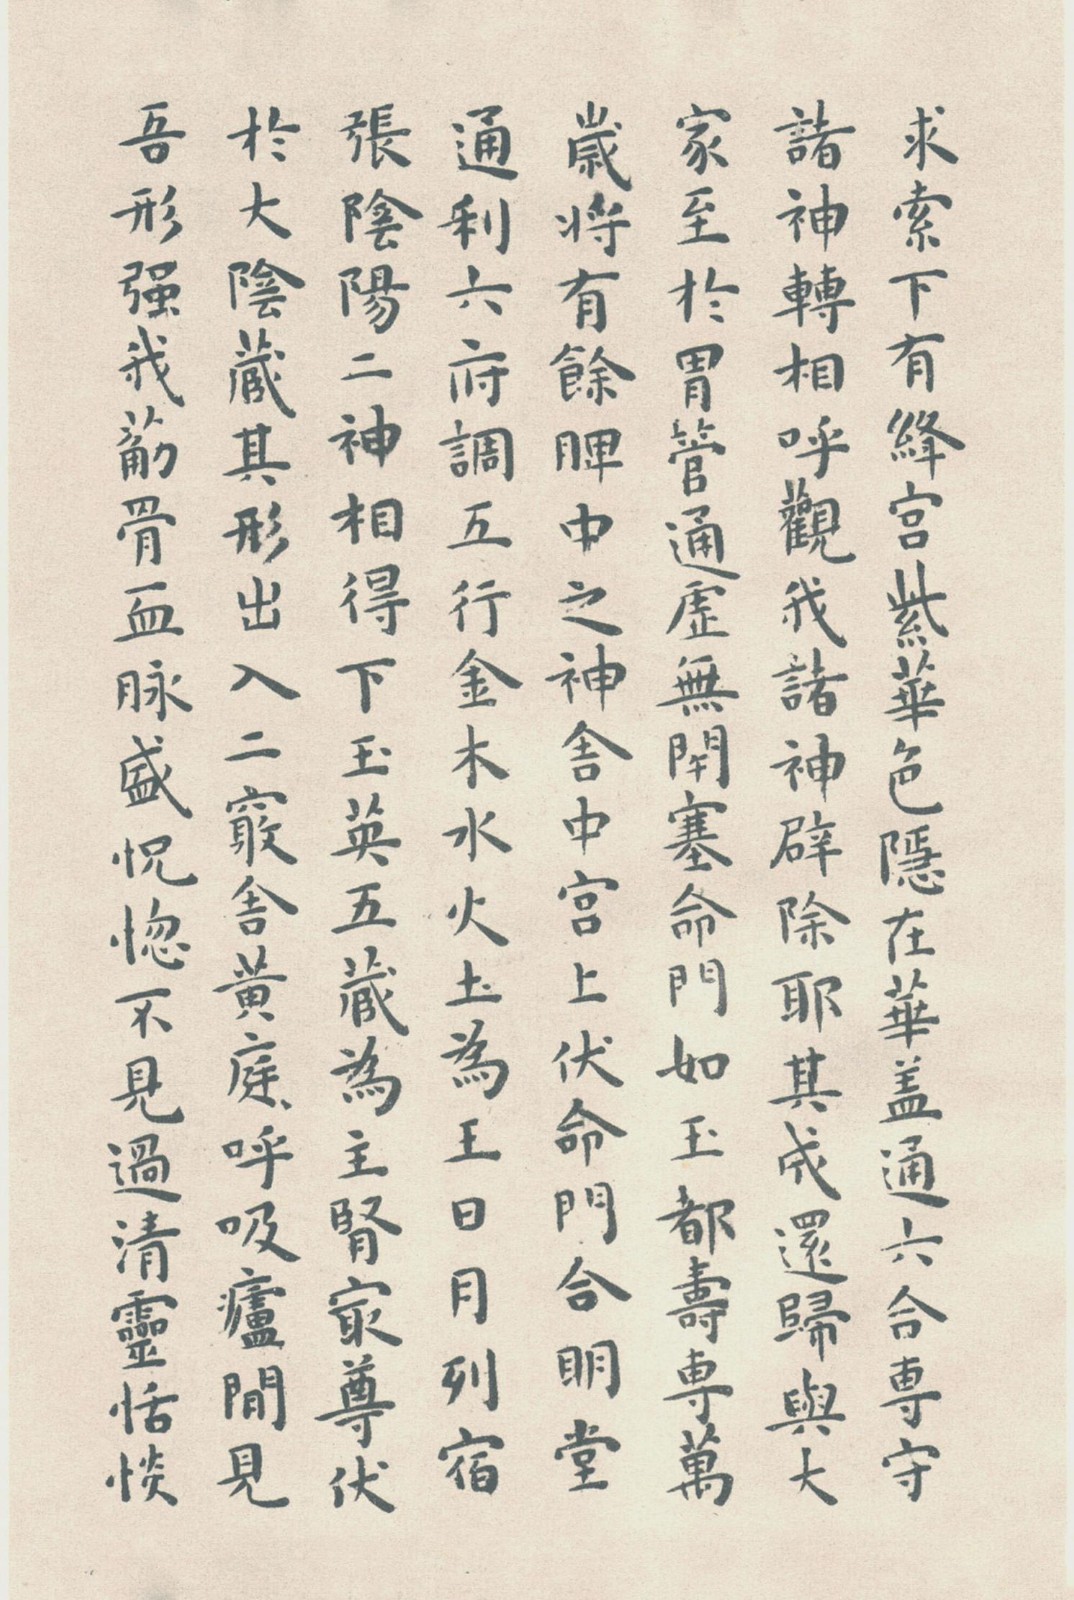 求索下有絳宮紫華色隱在華盖通六合専守
諸神轉相呼觀我諸神辟除耶其成還歸與大
家至於胃管通虛無閇塞命門如玉都壽専萬
歲将有餘脾中之神舎中宮上伏命門合明堂
通利六府調五行金木水火土為王日月列宿
張陰陽二神相得下玉英五藏為主腎㝡尊伏
於大陰藏其形出入二竅舎黃庭呼吸廬間見
吾形强我筋骨血脉盛怳惚不見過清靈恬惔